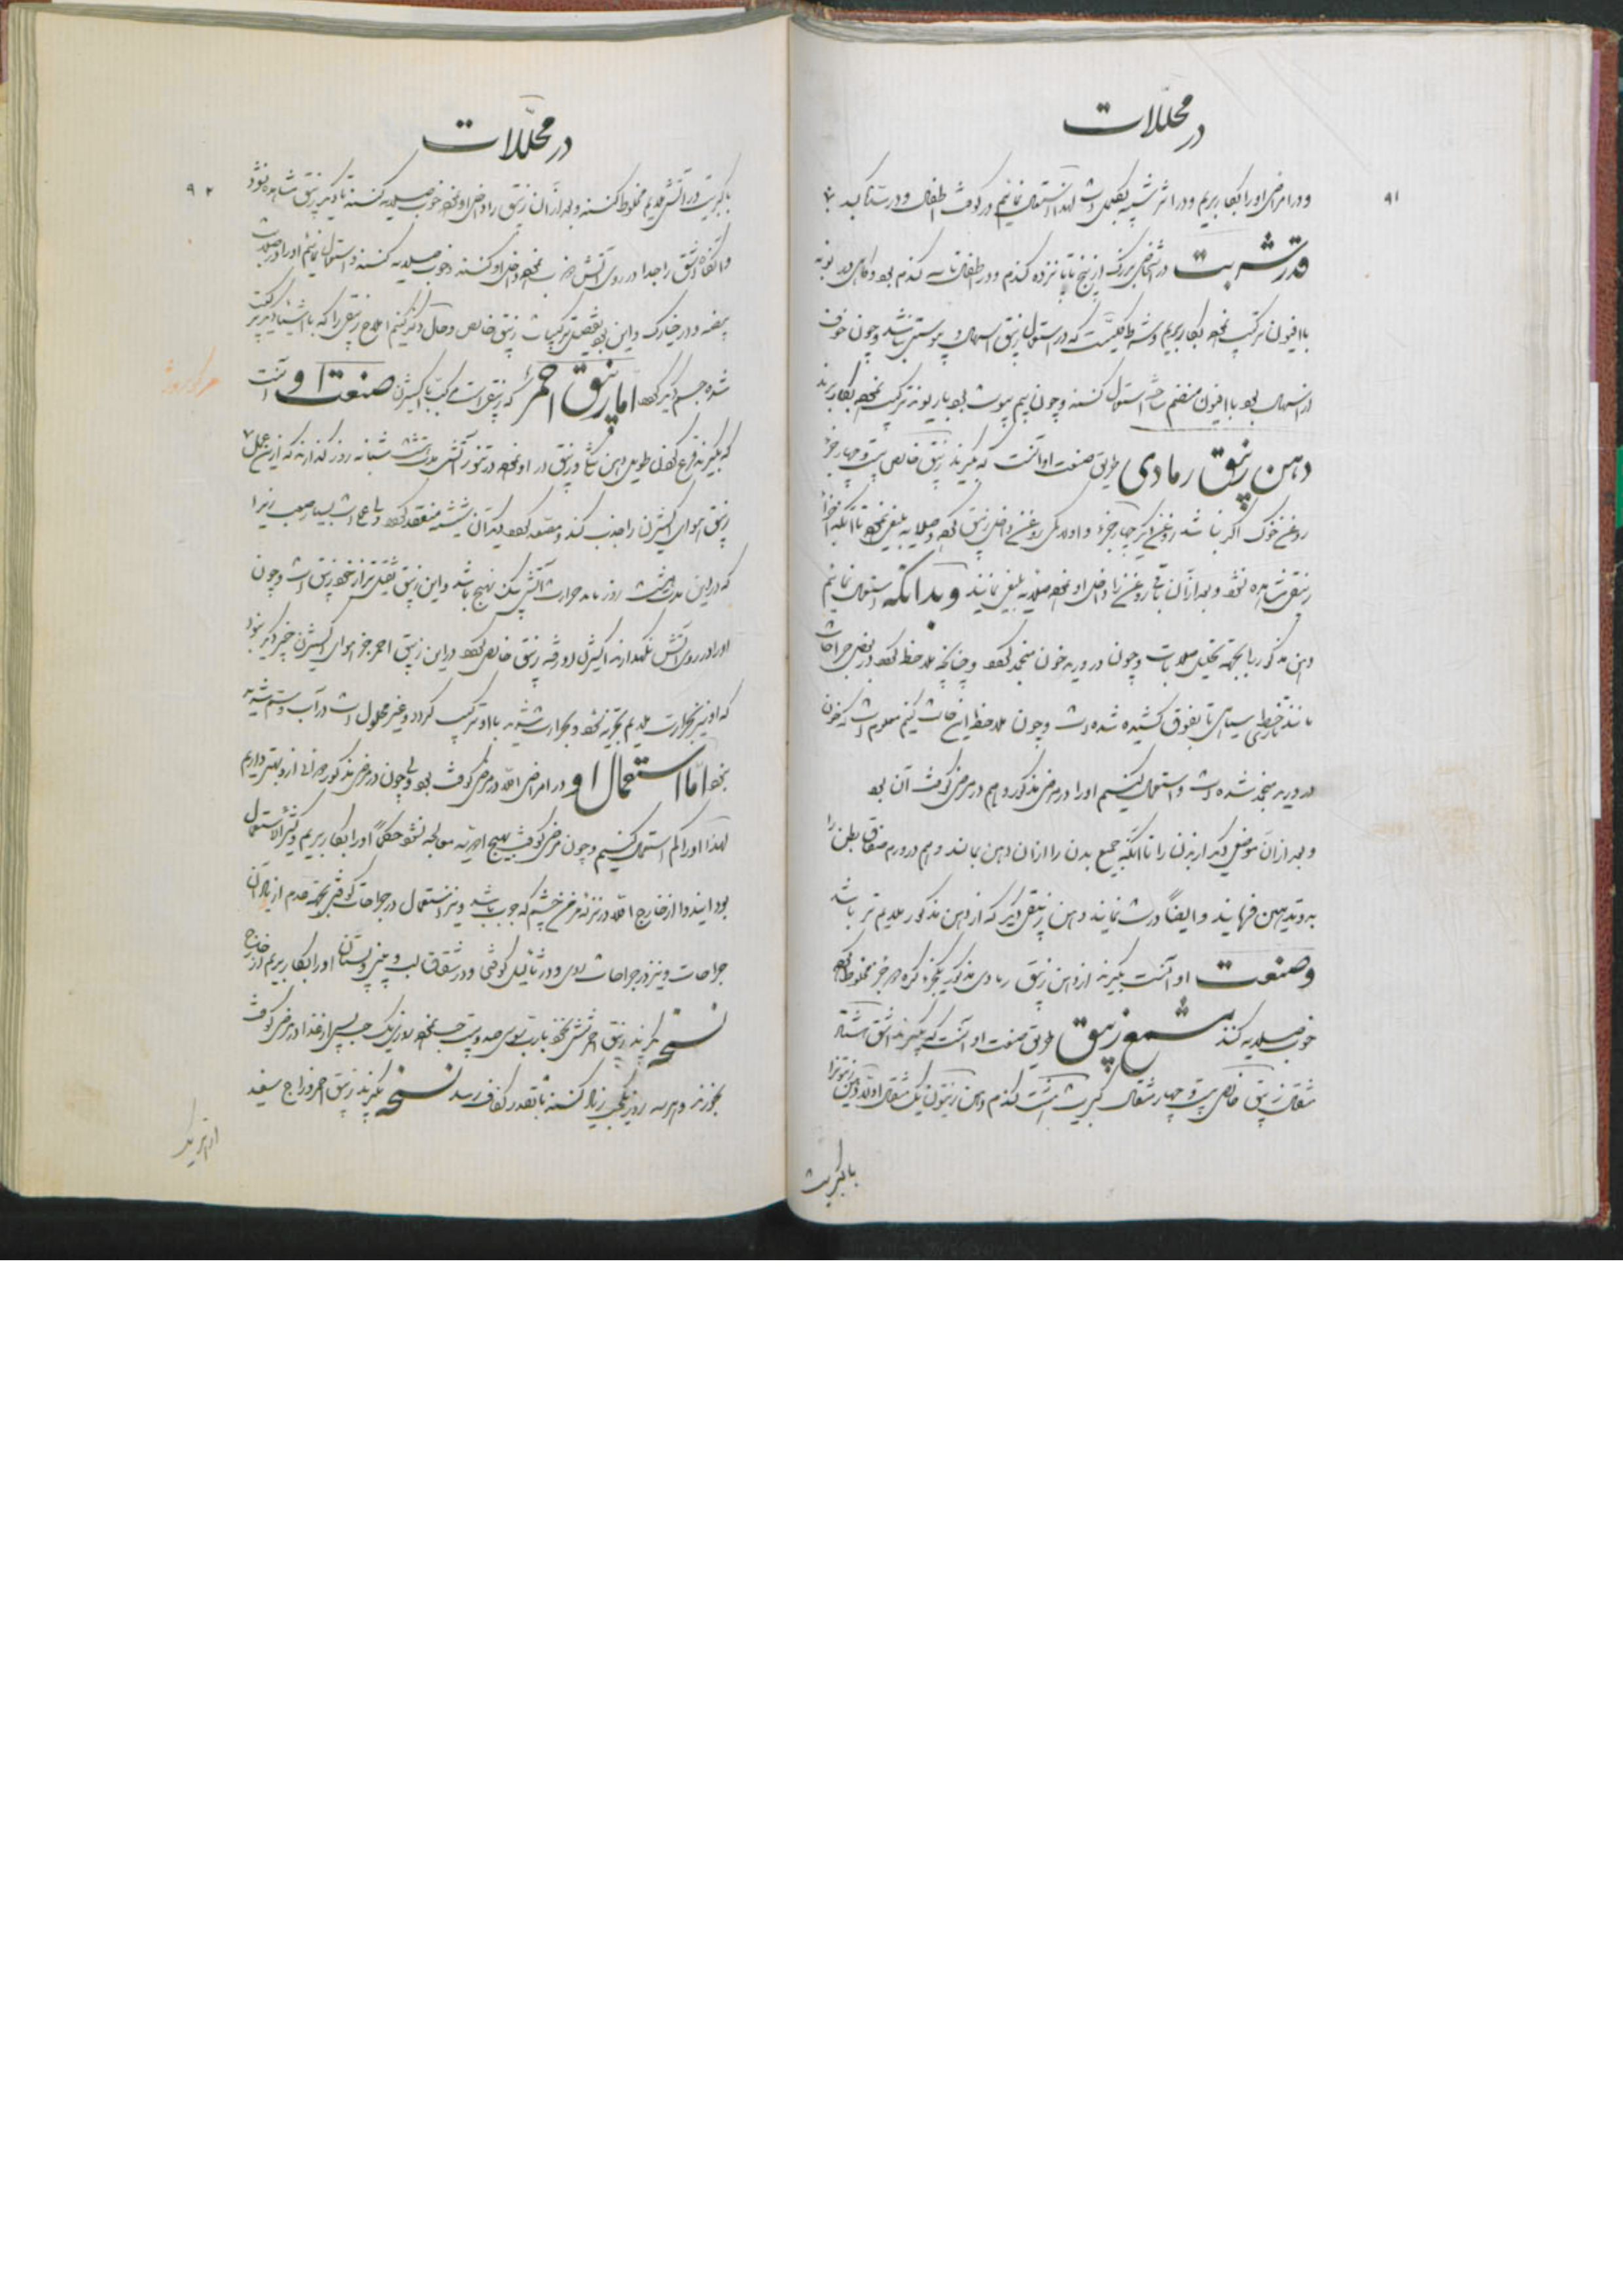 در محللات
۹۱
و در امراض او را بکار بریم و در اثر شبیه بقلمی است لهذا استعمال نمائیم در کوفت اطفال و درستا کبد
قدر شربت در اشخاص بزرگ از پنج تا پانزده گندم و در اطفال تا سه گندم بود و گاهی در نوبه
با افیون ترکیب نموده بکار بریم و شرط کلیست که در استعمال زیبق اسهال و یبوستی نباشد و چون خوف
از اسهال بود با افیون منضم ساخته استعمال کنند و چون بیم یبوست بود با ریوند ترکیب نموده بکار برند
دهن زیبق رمادی طریق صنعت او آنست که بگیرند زیبق خالص بیست و چهار جزء
روغن خوک اگر نباشد روغن دیگر چهار جزء و اول یکی روغن داخل زیبق کرده و صلایه بلیغی نموده تا آنکه اجزاء
زیبقی مشاهده نشود و بعد از آن باقی روغن را داخل او نموده صلایه بلیغی نمایند و بدانکه استعمال نمائیم
دهن مذکور را بجهة تحلیل صلابات و چون در ورید خون منجمد گردد و چنانچه ملاحظه گردد در بعض جراحات
مانند خطی سیاهی تا بفوق کشیده شده است و چون ملاحظه این حالت کنیم معلوم است که خون
در ورید منجمد شده است و استعمال کنیم او را در مرض مذکور و هم در مرض کوفت آن بود
و بعد از آن موضعی دیگر از بدن را تا آنکه جمیع بدن را از آن دهن بمالند و هم در ورم صفاق بطن را
به تدهین فرمایند و ایضاً درست نمایند دهن زیبقی دیگر که از دهن مذکور ملایم تر باشد
و صنعت او آنست بگیرند از دهن زیبق رمادی مذکور یکجزء کره دو جزء مخلوط کرده
خوب صلایه کنند مشمع زیبق طریق صنعت او آنست که بگیرند اشق هشتاد
مثقال زیبق خالص بیست و چهار مثقال کبریت هشت گندم دهن زیتون یک مثقال اولا دهن زیتون را
با کبریت
در محللات
۹۲
با کبریت در آتش ملایم مخلوط کنند و بعد از آن زیبق را داخل او نموده خوب صلایه کنند تا دیگر زیبق مشاهده نشود
و آنگاه اشق را جدا در روی آتش ذوب نموده داخل او کنند و خوب صلایه کنند و استعمال نمائیم او را در صلابت
بیضه و در خیارک و این بود تفصیل ترکیبات زیبق خالص و حال ذکر کنیم املاح زیبقی را که با اشیاء دیگر ترکیب
شده جسم دیگر گردد اما زیبق احمر که زیبق است مرکب با اکسیژن صنعت او آنست
که بگیرند قرع کوهی طویل دهن تنگ و زیبق در او نموده در تنور آتش مدت هشت شبانه روز گذارند که از این عمل
زیبق هوای اکسیژن را جذب کند و مصعد گردد و بعد از آن بشیشه منعقد گردد و این عمل است بسیار صعب زیرا
که در این مدت هشت روز باید حرارت آتش یک نهج باشد و این زیبق ثقیل تر از خود زیبق است و چون
او را در روی آتش نگهدارند اکسیژن او رفته زیبق خالص گردد در این زیبق احمر جز هوای اکسیژن چیز دیگر نبود
که او نیز بحرارت ملایم تجزیه نشود و بحرارت شدید با او ترکیب گردد و غیر محلول است در آب و ستم شدید
بود اما استعمال او در امراض اولا در مرض کوفت بود ولی چون در مرض مذکور دوائی از او بهتر داریم
لهذا او را کم استعمال کنیم و چون مرض کوفت بهیچ ادویه معالجه نشود حکماً او را بکار بریم و کثیر الاستعمال
بود ایندوا از خارج اولا در نزله مزمن چشم که جرب باشد و نیز استعمال در جراحات کوفتی بجهة هدم ازدیاد آن
جراحات و نیز در جراحات ردی و در ثآلیل کوفتی و در شقاق لب و بینی و پستان او را بکار بریم از خارج
نسخه بگیرند زیبق احمر شش نخود با رب سوس صد و بیست حب نموده روزی یک حب پس از غذا در مرض کوفت
بخورند و هر سه روز یکحب زیاد کنند تا بقدر کفاف رسد نسخه بگیرند زیبق احمر و زاج سفید
از هریک